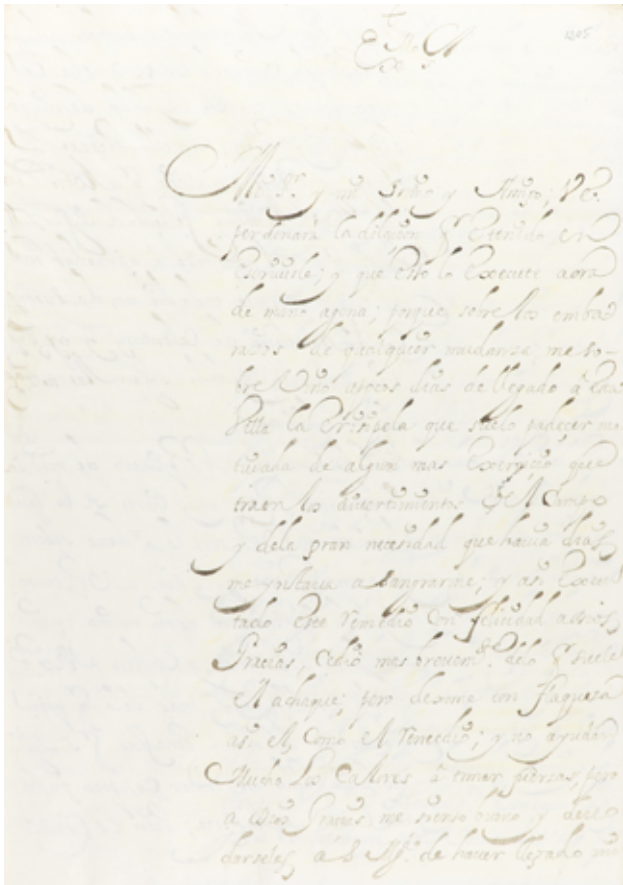 Exmo Sr
Mui Sr. y mi Dueño y Amigo; V.E.
perdonará la dilacion q. e tenido en
Escriuirle; y que esto lo Execute aora
de mano agena; porque sobre los emba
razos de qualquier mudanza me so-
breuino a pocos dias de llegado a esta
Villa la Erisipela que suelo padecer mo
tiuada de algun mas Exerçiçio que
traen los diuertimientos del Campo
y dela gran necesidad que hauia dias
me ynstaua a sangrarme; y asi Execu
tado Este remedio con felicidad a Dios
Gracias, Cedio mas breuem.te delo q. suele
el achaque; pero dexome con flaqueza
asi el, como el remedio; y no ayudan
Mucho los Calores a tomar fuerzas, pero
a Dios Gracias me siento bueno, y deuo
darselas, a S. Mg.d de hauer llegado mi